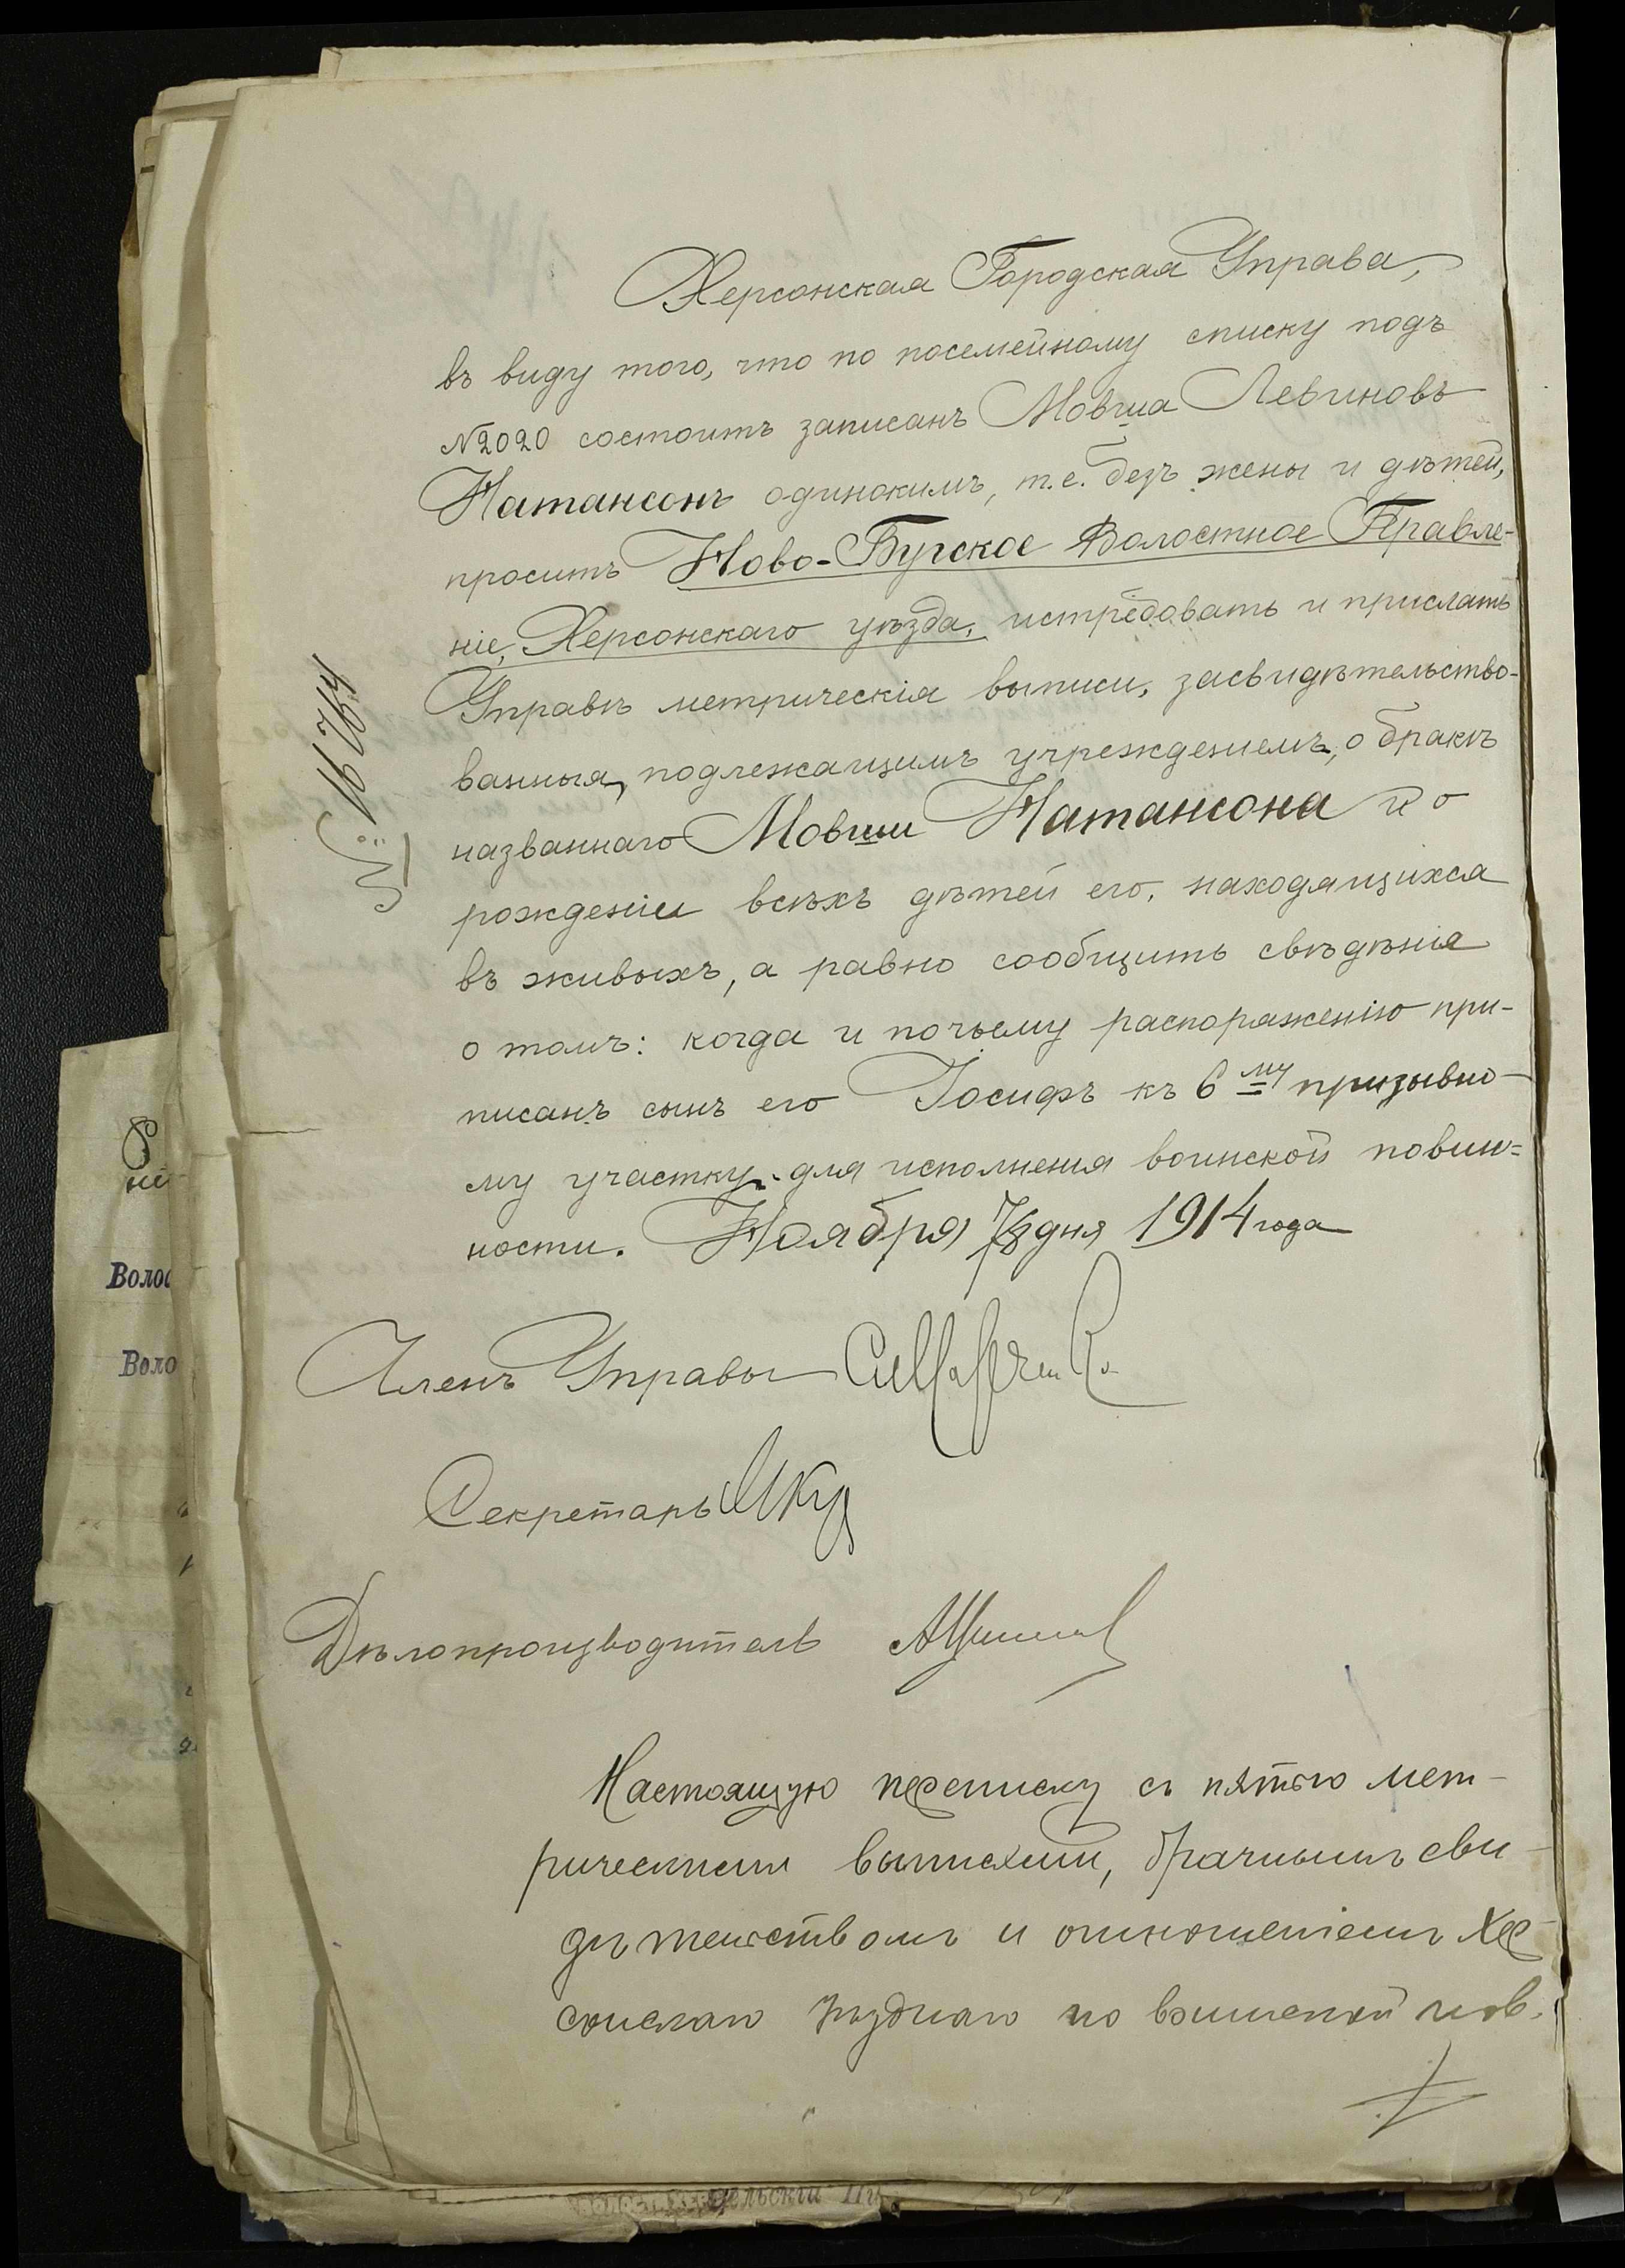 Херсонская Городская Управа,
въ виду того, что по посемейному списку подъ
№2020 состоитъ записанъ Мовша Левиновъ
Натансонъ одинокимъ, т.е. безъ жены и дѣтей,
проситъ Ново-Бугское Волостное Правле-
ніе, Херсонскаго уѣзда, истребовать и прислать
Управѣ метрическія выписи, засвидѣтельство-
ванныя, подлежащимъ учрежденіемъ, о бракѣ
названнаго Мовши Натансона и о
рожденіи всѣхъ дѣтей его, находящихся
въ живыхъ, а равно сообщить свѣдѣнія
о томъ: когда и почьему распоряженію при-
писанъ сынъ его Іосифъ къ 6му призывно-
му участку для исполненія воинской повин-
ности. Ноября дня 1914 года
№ 16764
Членъ Управы
Секретарь
Дѣлопроизводитель
Настоящую переписку съ пятью мет-
рическими выписями, брачнымъ сви-
дѣтельствомъ и отношеніемъ Хер-
сонскаго уѣзднаго по воинской пов.
Волос
Воло